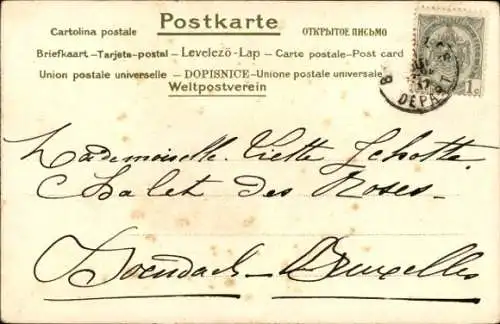 Postkarte
Cartolina postale ОТКРЫТОЕ ПИСЬМО
Briefkaart – Tarjeta-postal – Levelező-Lap – Carte postale-Post card
Union postale universelle – DOPISNICE – Unione postale universale
Weltpostverein
1c
DEPART
Mademoiselle Liette Schotte.
Chalet des Roses.
Boendael – Bruxelles